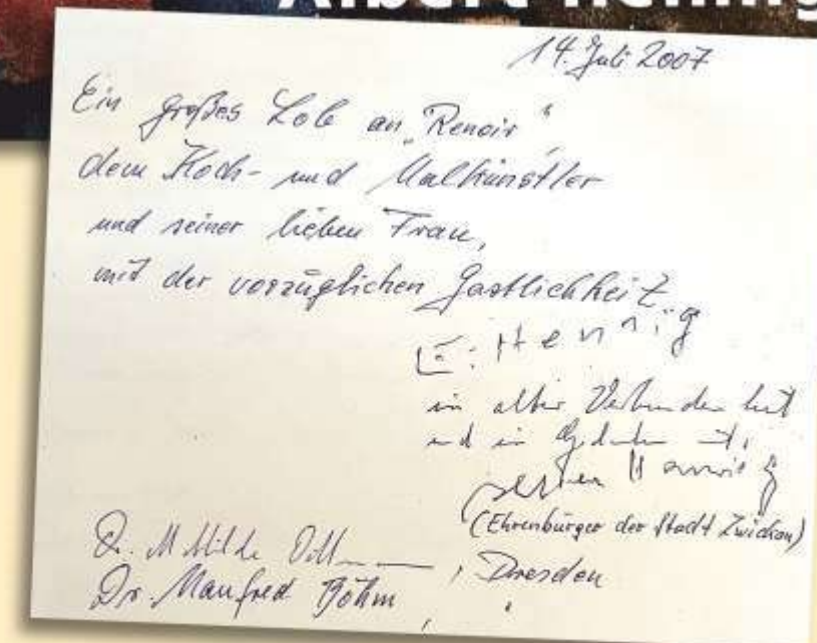 Albert Hennig
14. Juli 2007
Ein großes Lob an „Renoir“
dem Koch- und Malkünstler
und seiner lieben Frau,
mit der vorzüglichen Gastlichkeit
E. Hennig
in alter Verbundenheit
und in Gedanken
Hennig
(Ehrenbürger der Stadt Zwickau)
Dr.
, Dresden
Dr. Manfred Böhm,